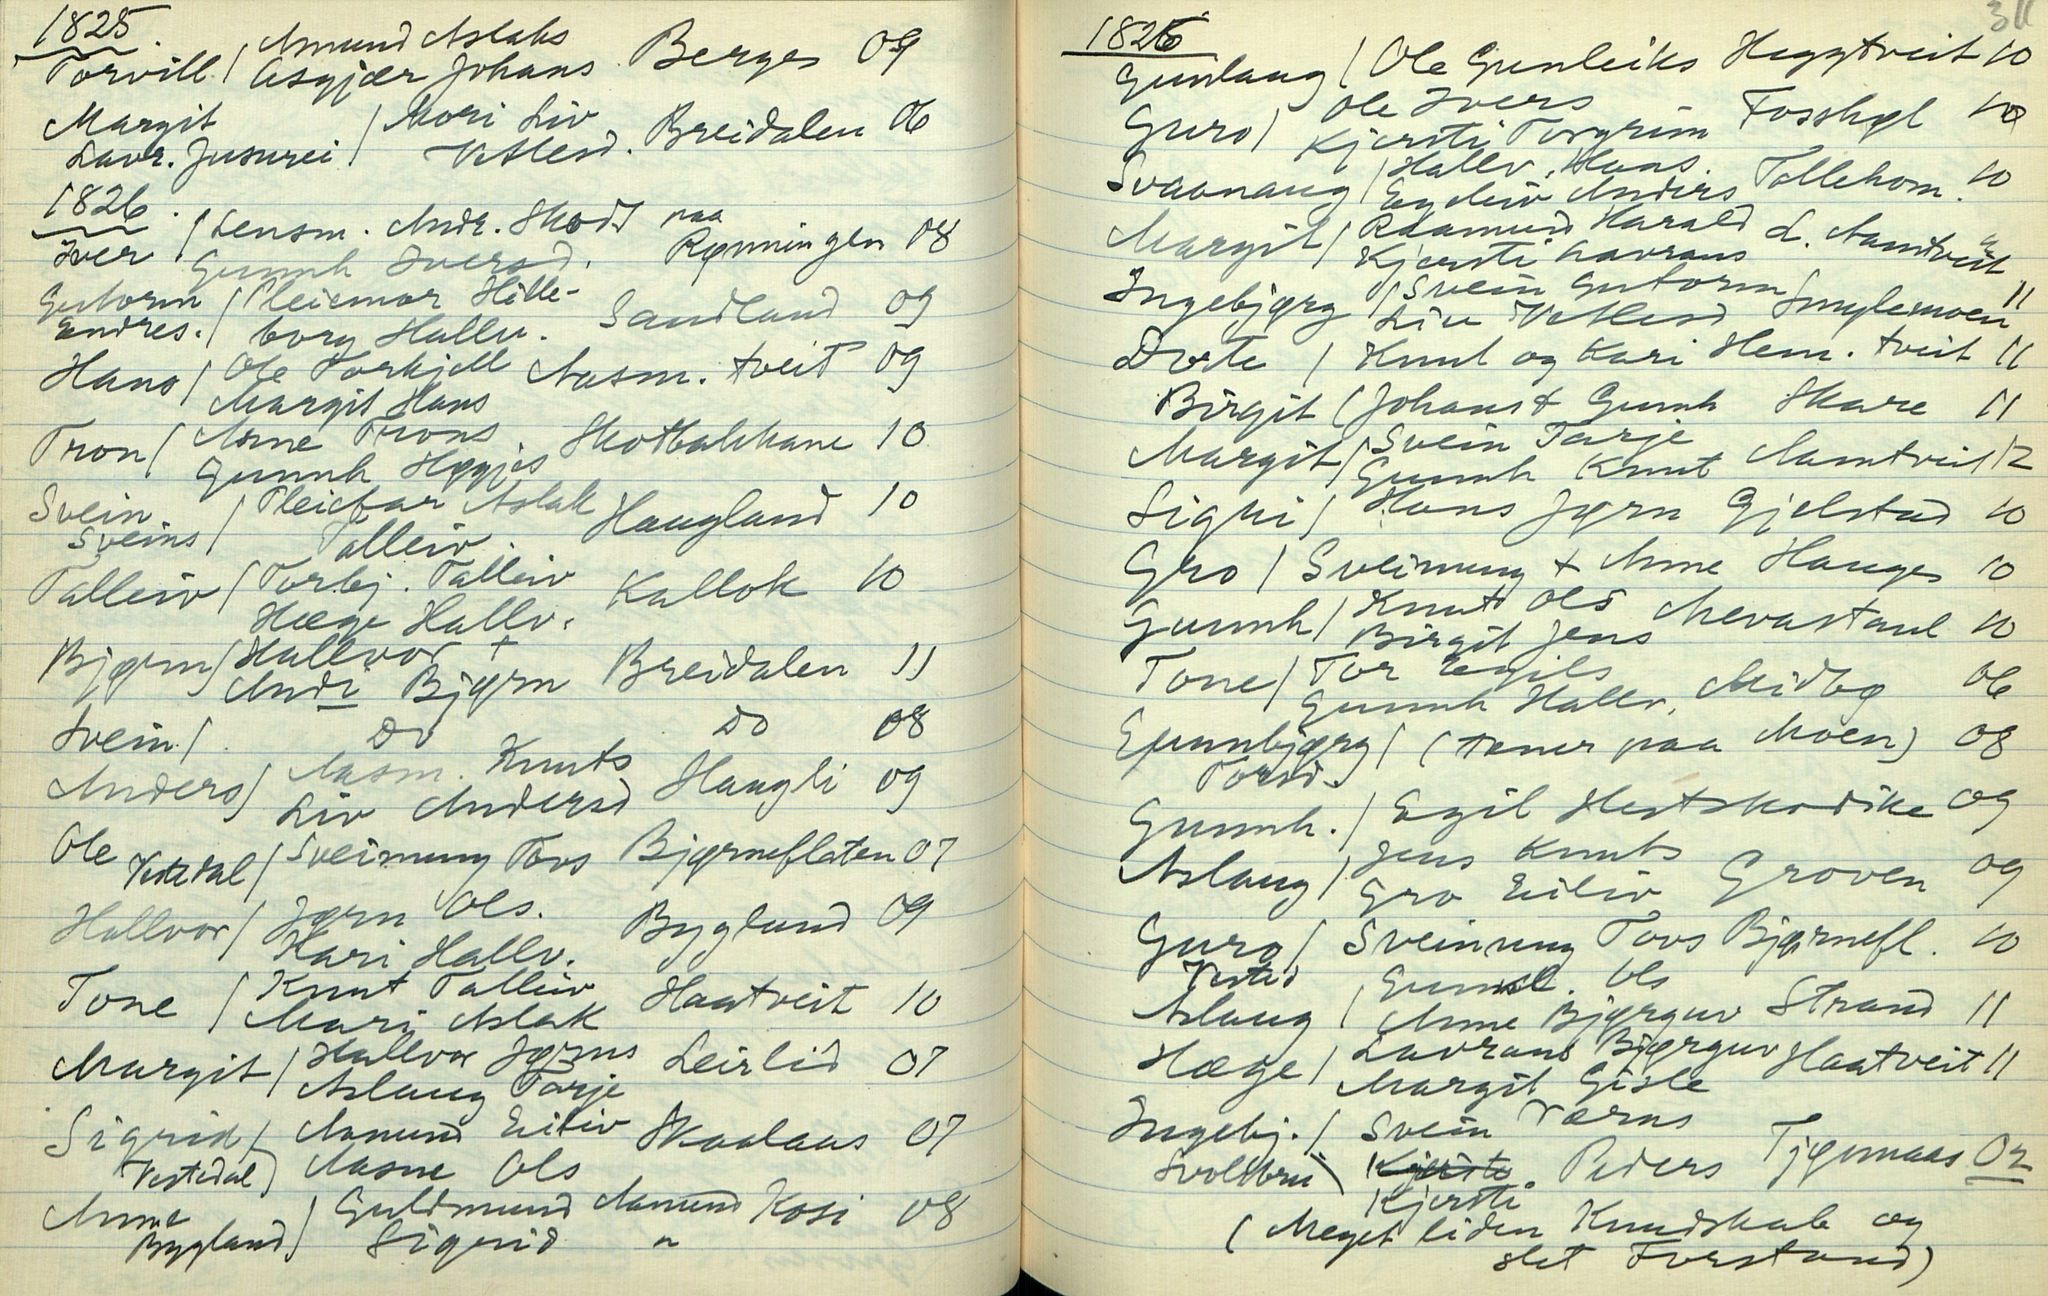 1825.
Torvill / Amund Aslaks
Asgjær Johans Berges 09
Margit / Mori Liv
Lavr. Jusurei / Vetlesd. Breidalen 06
1826.
Iver / Lensm. Andr. Skodt paa
Gunnh Iversd. Rønningen 08
Gutorm / Pleiemor Hille-
Endres. / borg Hallv. Sandland 09
Hans / Ole Torkjell Aasm. tveit 09
Margit Hans
Tron / Arne Trons
Gunnh Høgjes Skotbakkane 10
Svein / Pleiefar Aslak
Sveins / Talleiv. Haugland 10
Talleiv / Torbj. Talleiv
Hæge Hallv. Kallok 10
Bjørn / Hallvor +
Andi Bjørn Breidalen 11
Svein / Do Do 08
Anders / Aasm. Knuts
Liv Andersd Haugli 09
Ole Vestedal / Sveinung Tovs Bjørneflaten 07
Hallvor / Jørn Ols.
Kari Hallv. Bygland 09
Tone / Knut Talleiv
Mari Aslak Haatveit 10
Margit / Hallvor Jørns
Aslaug Tarje Leirlid 07
Sigrid / Aamund Eiliv Skaalaas 07
Vestedal / Aasne Ols
Anne / Guldmund Aamund Kosi 08
Bygland / Sigrid "
311
1826
Gunlaug / Ole Gunleiks Heggtveit 10
Guro / Ole Ivers
Kjersti Torgrim Fosshyl 10
Svaanaug / Hallv. Hans.
Eyleiv Anders Tollehom. 10
Margit / Raamund Harald L. Aamtveit
Kjersti Lavrans
Ingebjørg / Svein Gutorm
Liv Vetlesd Smylemoen 11
Dorte / Knut og Kari Hem. tveit 11
Birgit / Johans + Gunnh Skare 11
Margit / Svein Tarje
Gunnh Knut Aamtveit 12
Signi / Hans Jørn Gjelstad 10
Gro / Sveinung + Anne Hauges 10
Gunnh / Knut Ols
Birgit Jens Mevastaul 10
Tone / Tor Egils
Gunnh Hallv. Midbø 06
Gunnbjørg / (tener paa Moen) 08
Torsd.
Gunnh. / Egil Hestskodike 09
Aslaug / Jens Knuts
Gro Eiliv Groven 09
Guro / Sveinung Tovs Bjørnefl. 10
Vested
Aslaug / Gunnl. Ols
Anne Bjørguv Strand 11
Hæge / Lavrans Bjørguv Haatveit 11
Margit Gisle
Ingebj. / Svein Tærns
Peders Tjønnaas 07
Kjersti
(Meget liden Kundskab og
slet Forstand)